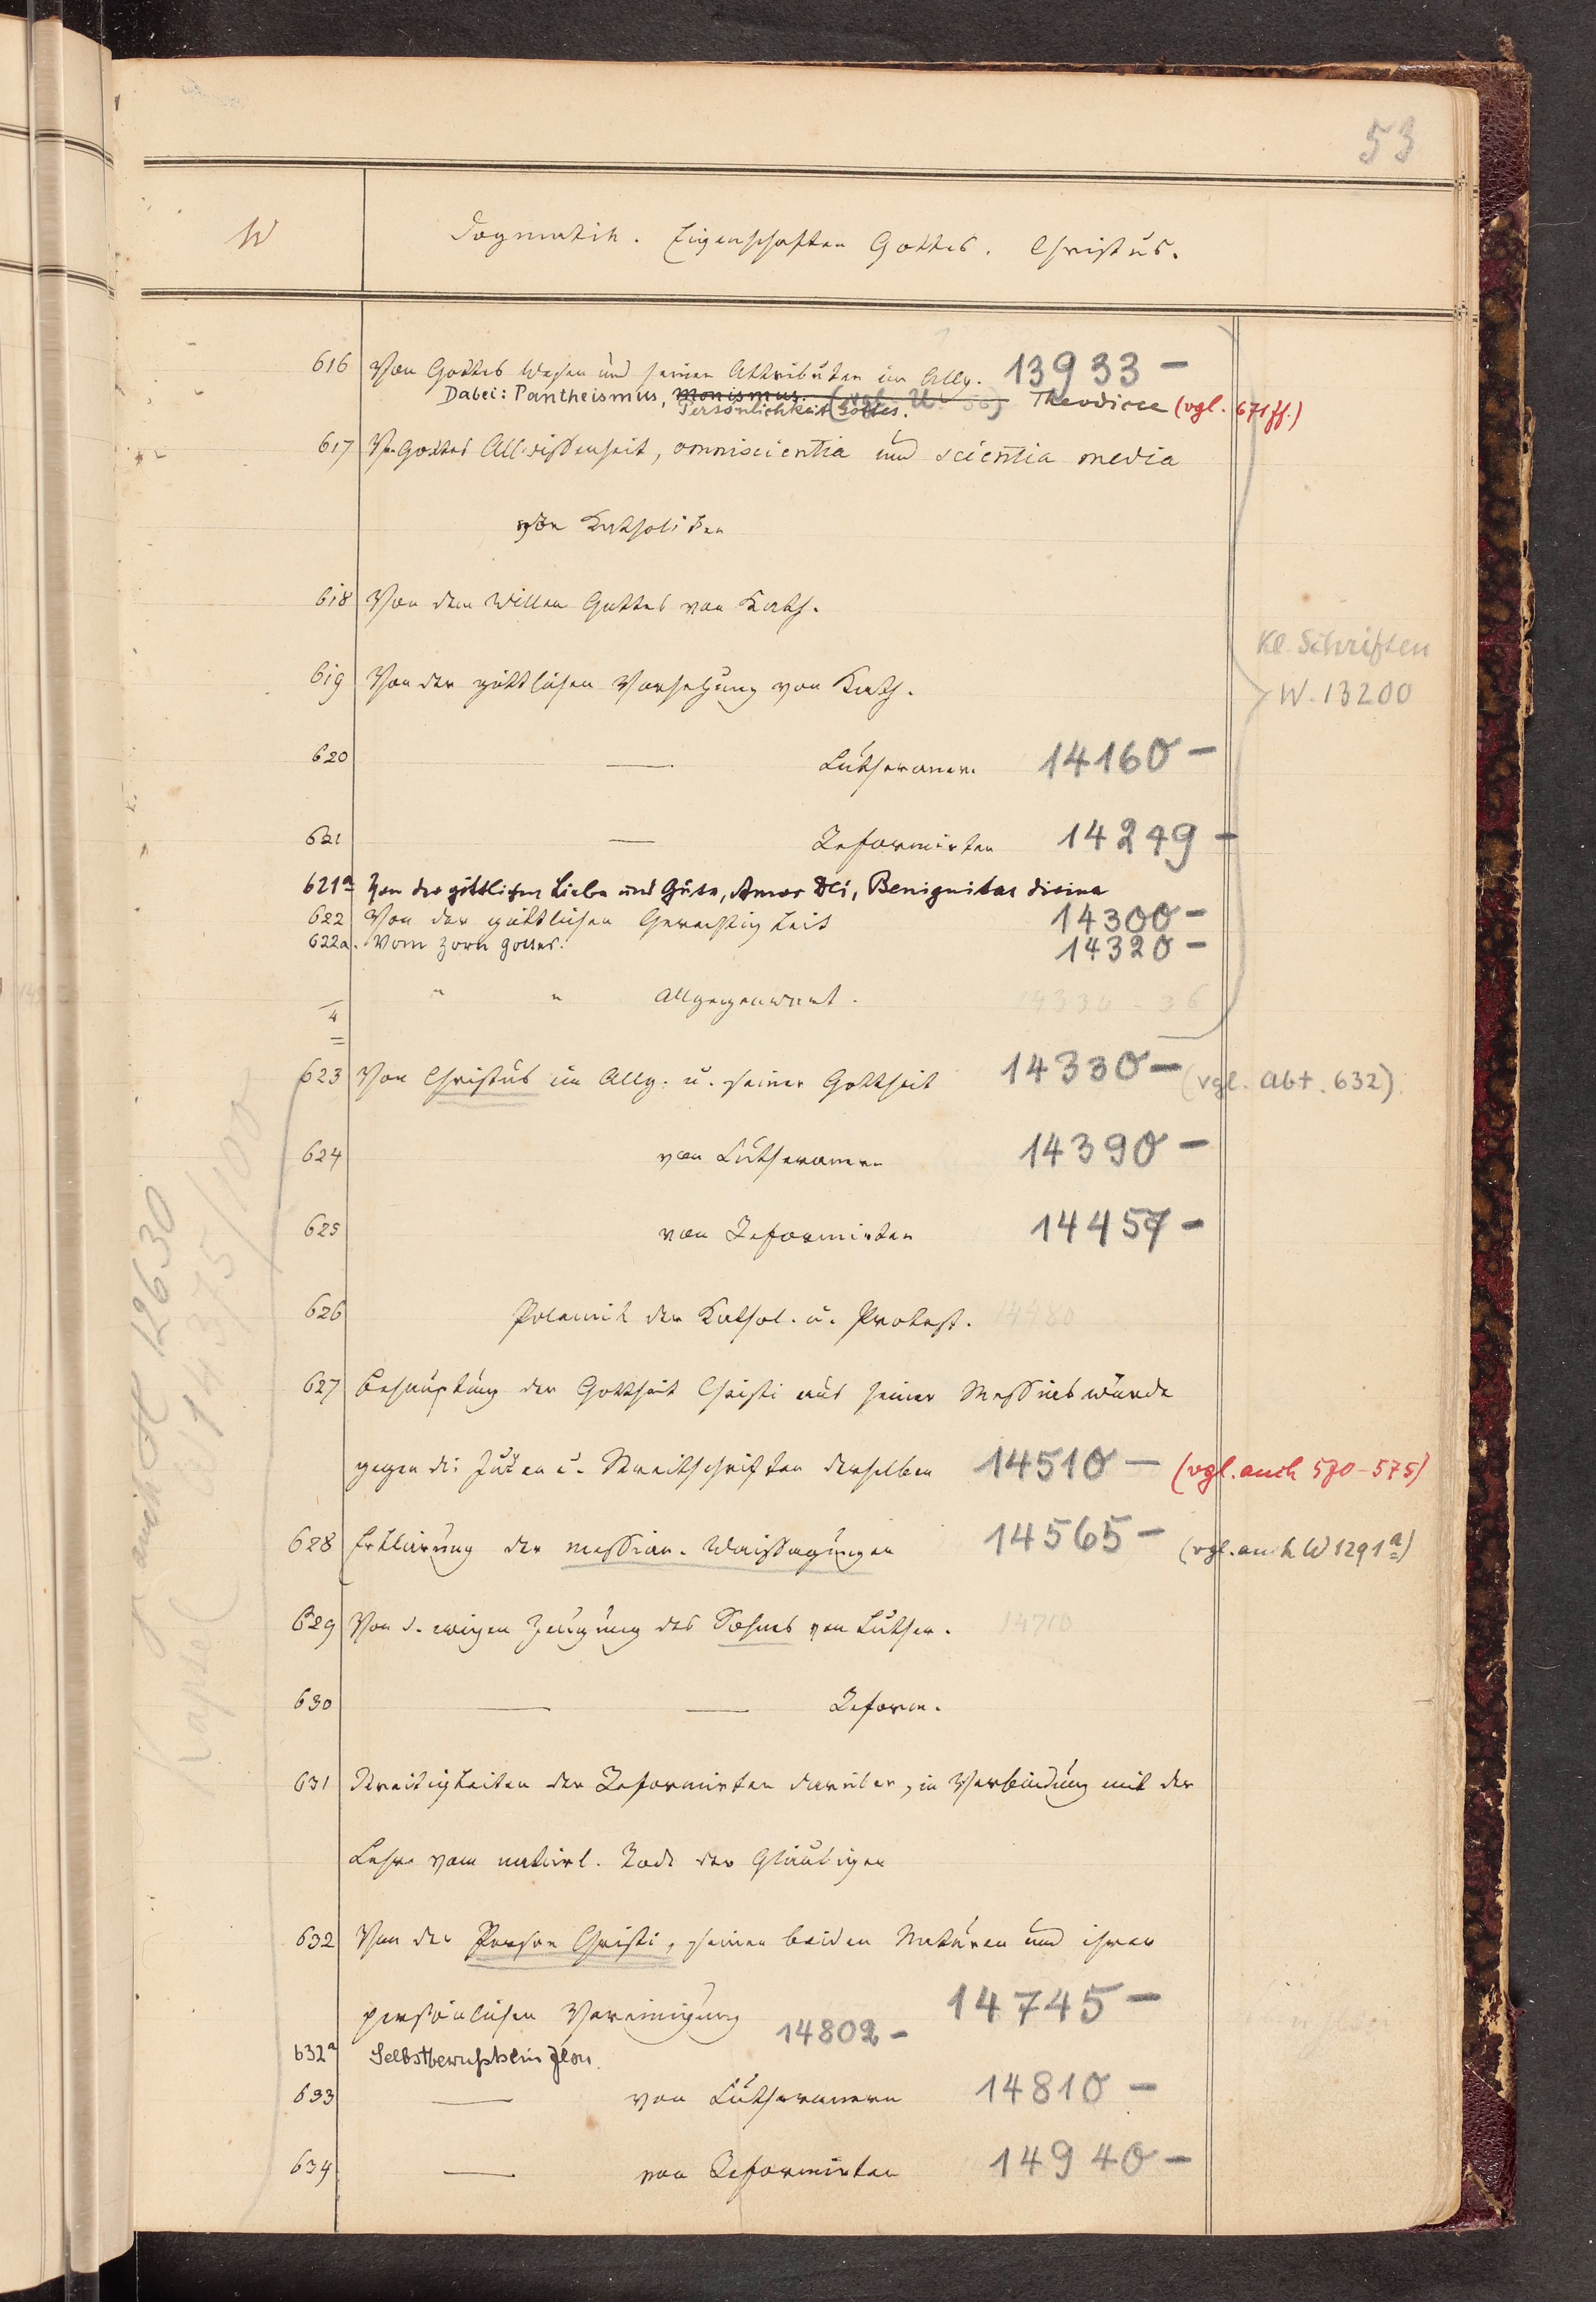 53
W Dogmatik. Eigenschaften Gottes. Christus.
616 Von Gottes Wesen und seinen Attributen im Allg. 13933 –
Dabei: Pantheismus, Monismus. (vgl. U. 56) Theodicee (vgl. 671 ff.)
Persönlichkeit Gottes.
617 Von Gottes Allwissenheit, omniscientia und scientia media
von Katholiken
618 Von dem Willen Gottes von Kath.
619 Von der göttlichen Vorsehung von Kath.
Kl. Schriften
W. 13200
620 — Lutheranern 14160 –
621 — Reformirten 14249 –
621a Von der göttlichen Liebe und Güte, Amor Dei, Benignitas divina
622 Von der göttlichen Gerechtigkeit 14300 –
622a. Vom Zorn Gottes. 14320 –
4 " " Allgegenwart.
623 Von Christus im Allg. u. seiner Gottheit 14330 – (vgl. Abt. 632)
624 von Lutheranern 14390 –
625 von Reformirten 14457 –
626 Polemik der Kathol. u. Protest. 14480
627 Behauptung der Gottheit Christi aus seiner Messiaswürde
gegen die Juden u. Streitschriften derselben 14510 – (vgl. auch 570–575)
628 Erklärung der messian. Weissagungen 14565 – (vgl. auch W 1291a)
629 Von d. ewigen Zeugung des Sohnes von Luther. 14710
630 — — Reform.
631 Streitigkeiten der Reformirten darüber, in Verbindung mit der
Lehre vom natürl. Tode der Gläubigen
632 Von der Person Christi, seinen beiden Naturen und ihrer
persönlichen Vereinigung 14745 –
632a Selbstbewußtsein Jesu. 14802 –
633 — von Lutheranern 14810 –
634 — von Reformirten 14940 –
auch 12630
Kapsel W 14375/100